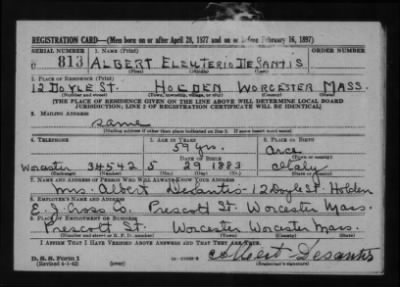 REGISTRATION CARD—(Men born on or after April 28, 1877 and on or before February 16, 1897)
SERIAL NUMBER 1. NAME (Print) ORDER NUMBER
U 813 ALBERT ELEUTERIO DESANTIS
(First) (Middle) (Last)
2. PLACE OF RESIDENCE (Print)
12 DOYLE ST. HOLDEN WORCESTER MASS.
(Number and street) (Town, township, village, or city) (County) (State)
[THE PLACE OF RESIDENCE GIVEN ON THE LINE ABOVE WILL DETERMINE LOCAL BOARD
JURISDICTION; LINE 2 OF REGISTRATION CERTIFICATE WILL BE IDENTICAL]
3. MAILING ADDRESS
same
(Mailing address if other than place indicated on line 2. If same insert word same)
4. TELEPHONE 5. AGE IN YEARS 6. PLACE OF BIRTH
59 yrs. Arce
DATE OF BIRTH (Town or county)
Worcester 34542 5 29 1883 Italy
(Exchange) (Number) (Mo.) (Day) (Yr.) (State or country)
7. NAME AND ADDRESS OF PERSON WHO WILL ALWAYS KNOW YOUR ADDRESS
Mrs. Albert Desantis - 12 Doyle St. Holden
8. EMPLOYER'S NAME AND ADDRESS
E. J. Cross Co. Prescott St. Worcester Mass.
9. PLACE OF EMPLOYMENT OR BUSINESS
Prescott St. Worcester Worcester Mass.
(Number and street or R. F. D. number) (Town) (County) (State)
I AFFIRM THAT I HAVE VERIFIED ABOVE ANSWERS AND THAT THEY ARE TRUE.
D. S. S. Form 1
(Revised 4-1-42) Albert Desantis